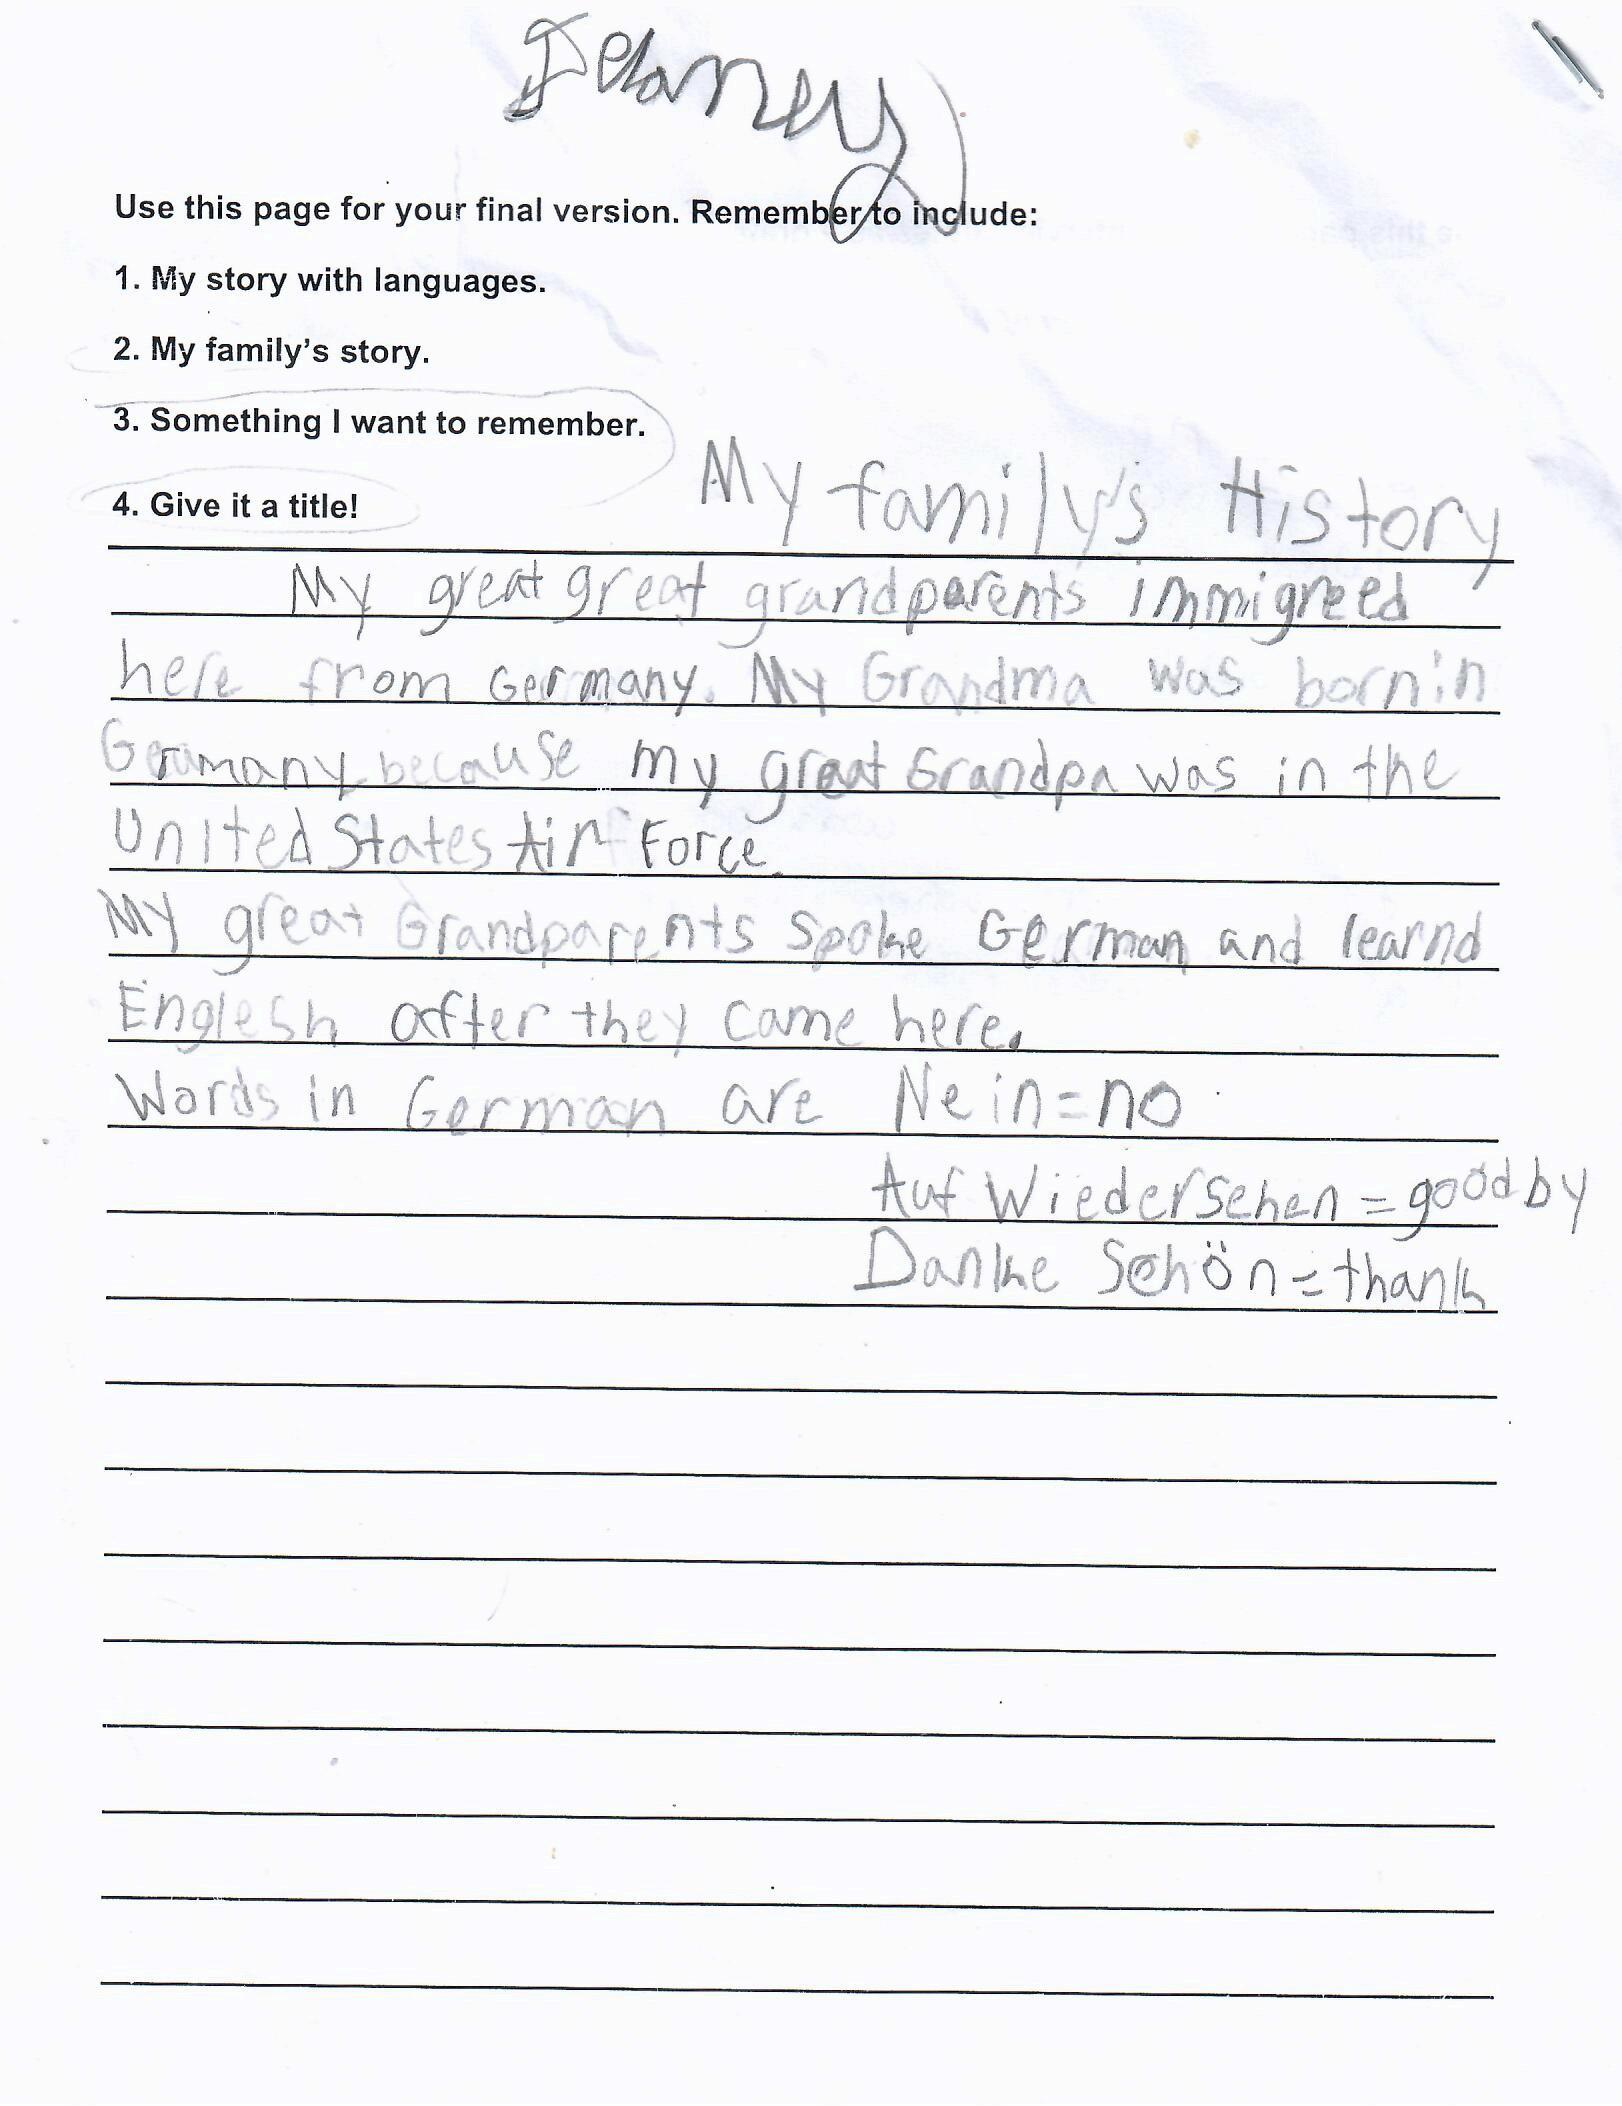 Delaney
Use this page for your final version. Remember to include:
1. My story with languages.
2. My family's story.
3. Something I want to remember.
4. Give it a title!
My family's History
My great great grandparents immigreed
here from Germany. My Grandma was born in
Geramany because my great Grandpa was in the
United States Air Force.
My great Grandparents spoke German and learnd
Englesh after they came here.
Words in German are Nein=no
Auf Wiedersehen=goodby
Danke Schön=thank